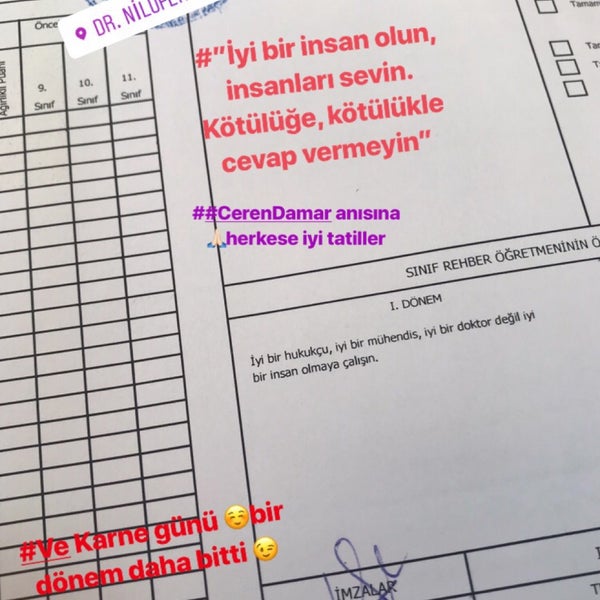 DR. NİLÜFER
Önce
Ağırlıklı Puanı
9. Sınıf
10. Sınıf
11. Sınıf
#"İyi bir insan olun,
insanları sevin.
Kötülüğe, kötülükle
cevap vermeyin"
##CerenDamar anısına
🙏🏻herkese iyi tatiller
SINIF REHBER ÖĞRETMENİNİN
I. DÖNEM
İyi bir hukukçu, iyi bir mühendis, iyi bir doktor değil iyi
bir insan olmaya çalışın.
#Ve Karne günü ☺️bir
dönem daha bitti 😉
İMZALAR